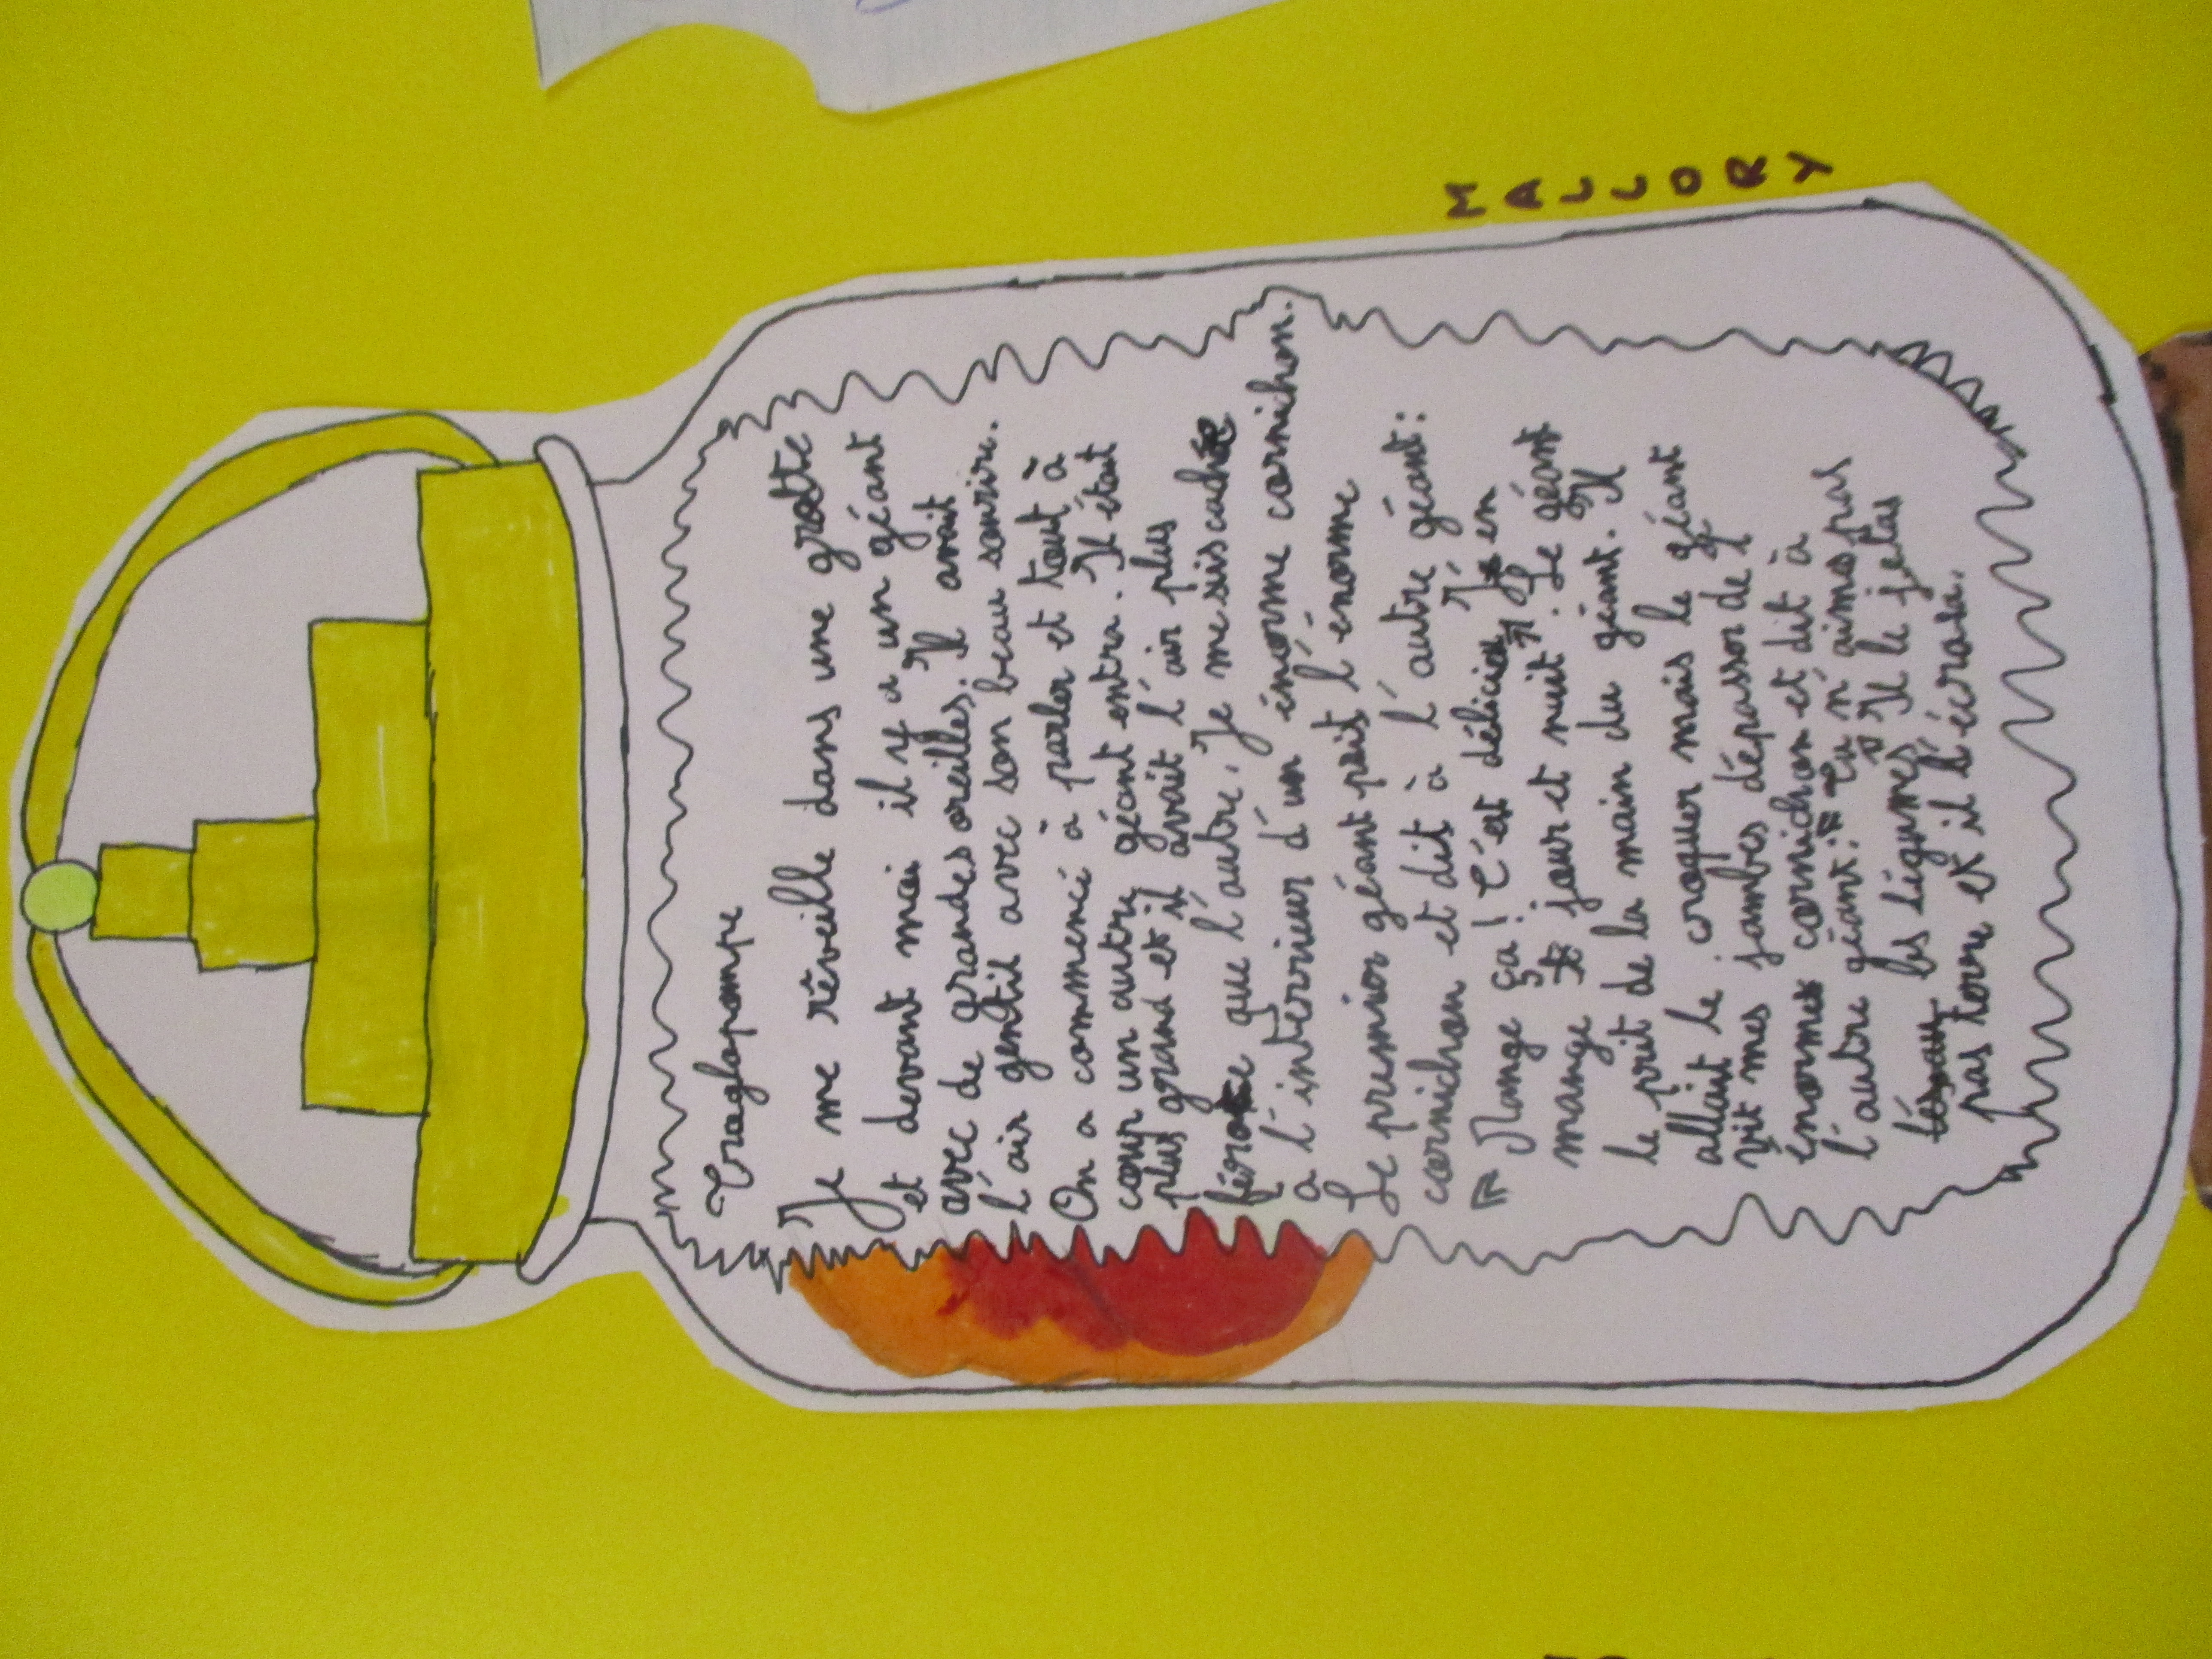 Troglopompe
Je me réveille dans une grotte
et devant moi il y a un géant
avec de grandes oreilles. Il avait
l'air gentil avec son beau sourire.
On a commencé à parler et tout à
coup un autre géant entra. Il était
plus grand et il avait l'air plus
féroce que l'autre. Je me suis caché
a l'interrieur d'un énorme cornichon.
Le premier géant prit l'énorme
cornichon et dit à l'autre géant:
« Mange ça ! C'est délicieux J'en
mange jour et nuit ». Le géant
le prit de la main du géant. Il
allait le croquer mais le géant
vit mes jambes dépasser de l'
énorme cornichon et dit à
l'autre géant: « Tu n'aimes pas
les légumes » Il le jetas
pas terre et il l'écrasa.
MALLORY